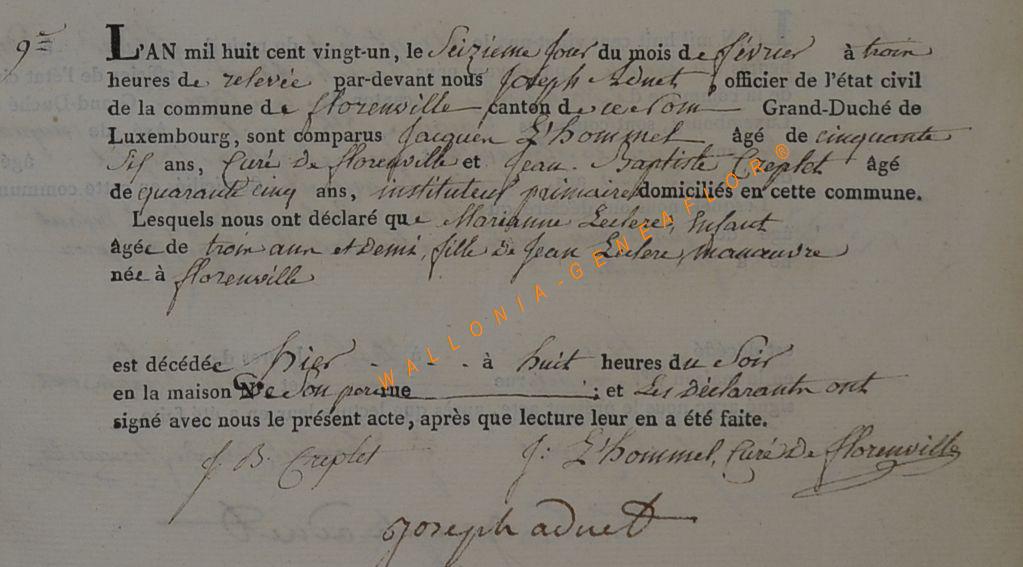 9e
L'AN mil huit cent vingt-un, le Seizieme jour du mois de fevrier à trois
heures de relevée par-devant nous Joseph Adnet, officier de l'état civil
de la commune de florenville canton de ce Nom Grand-Duché de
Luxembourg, sont comparus Jacques L'hommel âgé de cinquante
Six ans, Curé De florenville et Jean-Baptiste Creplet âgé
de quarante cinq ans, instituteur primaire domiciliés en cette commune.
Lesquels nous ont déclaré que Marianne Leclere, Enfant
âgée de trois ans et Demi, fille De Jean Leclere, manœuvre
née à florenville
est décédée hier - - - à huit heures du Soir
en la maison De Son pere rue ; et Les Déclarants ont
signé avec nous le présent acte, après que lecture leur en a été faite.
J. B. Creplet J: L'hommel, Curé De florenville
Joseph adnet
WALLONIA-GENEAFLOR®